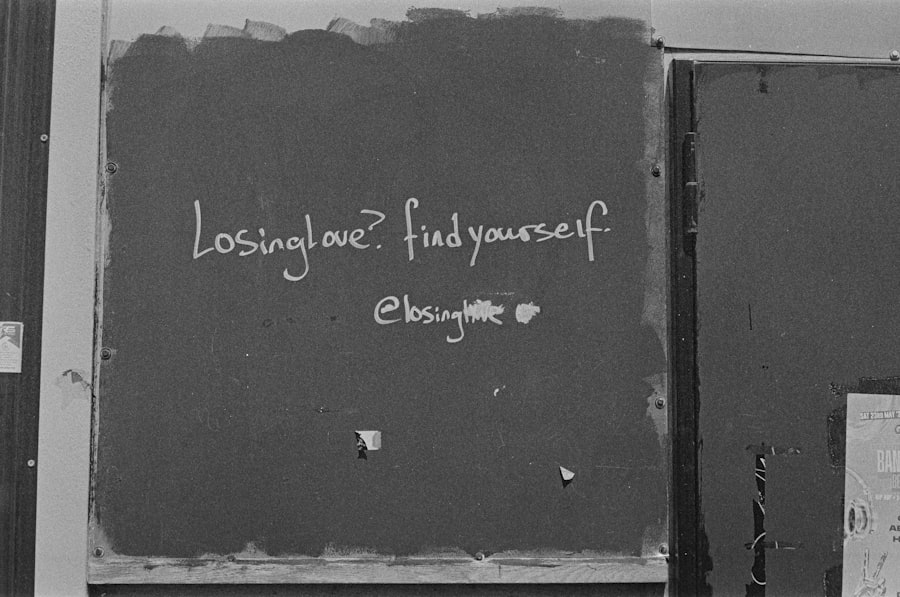 Losinglove? findyourself.
@losing
SAT 23RD MAY
BAN